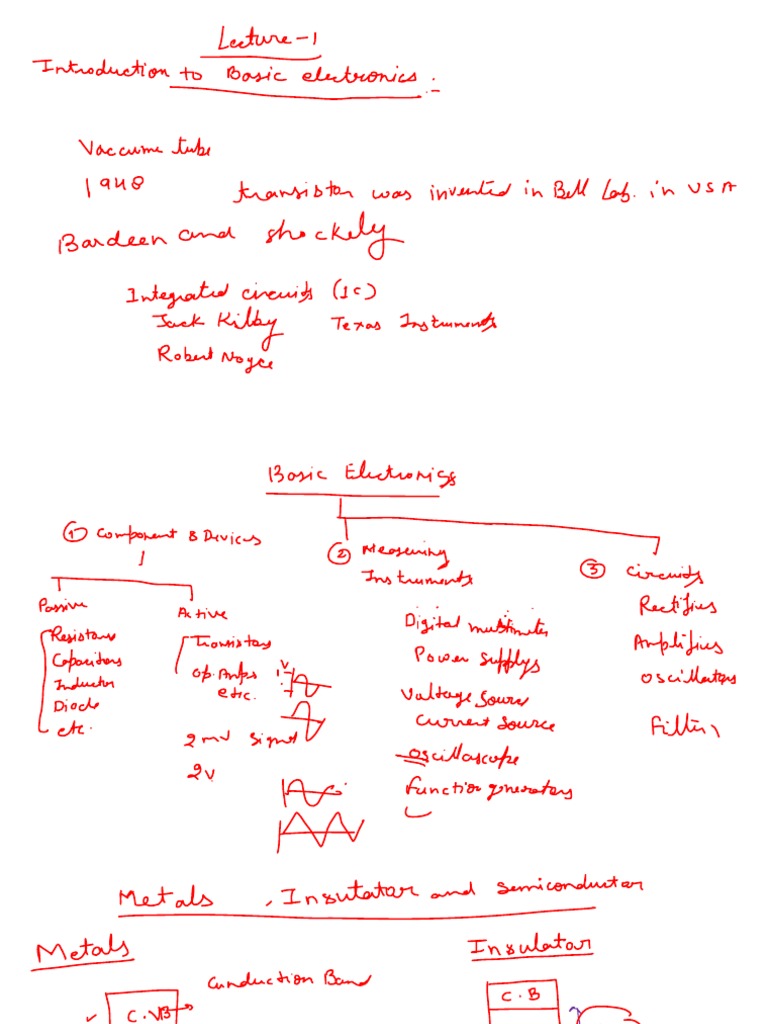 Lecture-1
Introduction to Basic electronics :-
Vaccume tube
1948 transistor was invented in Bell Lab. in USA
Bardeen and shockely
Integrated circuits (IC)
Jack Kilby Texas Instruments
Robert Noyce
Basic Electronics
① Component & Devices
② Measuring Instruments
③ Circuits
Passive
Resistors
Capacitors
Inductor
Diode
etc.
Active
Transistors
Op. Amps
etc.
1 V
2 mV signal
2V
Digital multimeter
Power Supplys
Valtage Source
Current Source
oscilloscope
Function generators
Rectifies
Amplifies
oscillators
Filters
Metals , Insutatar and semiconductar
Metals
Conduction Band
C.VB
Insulatar
C.B